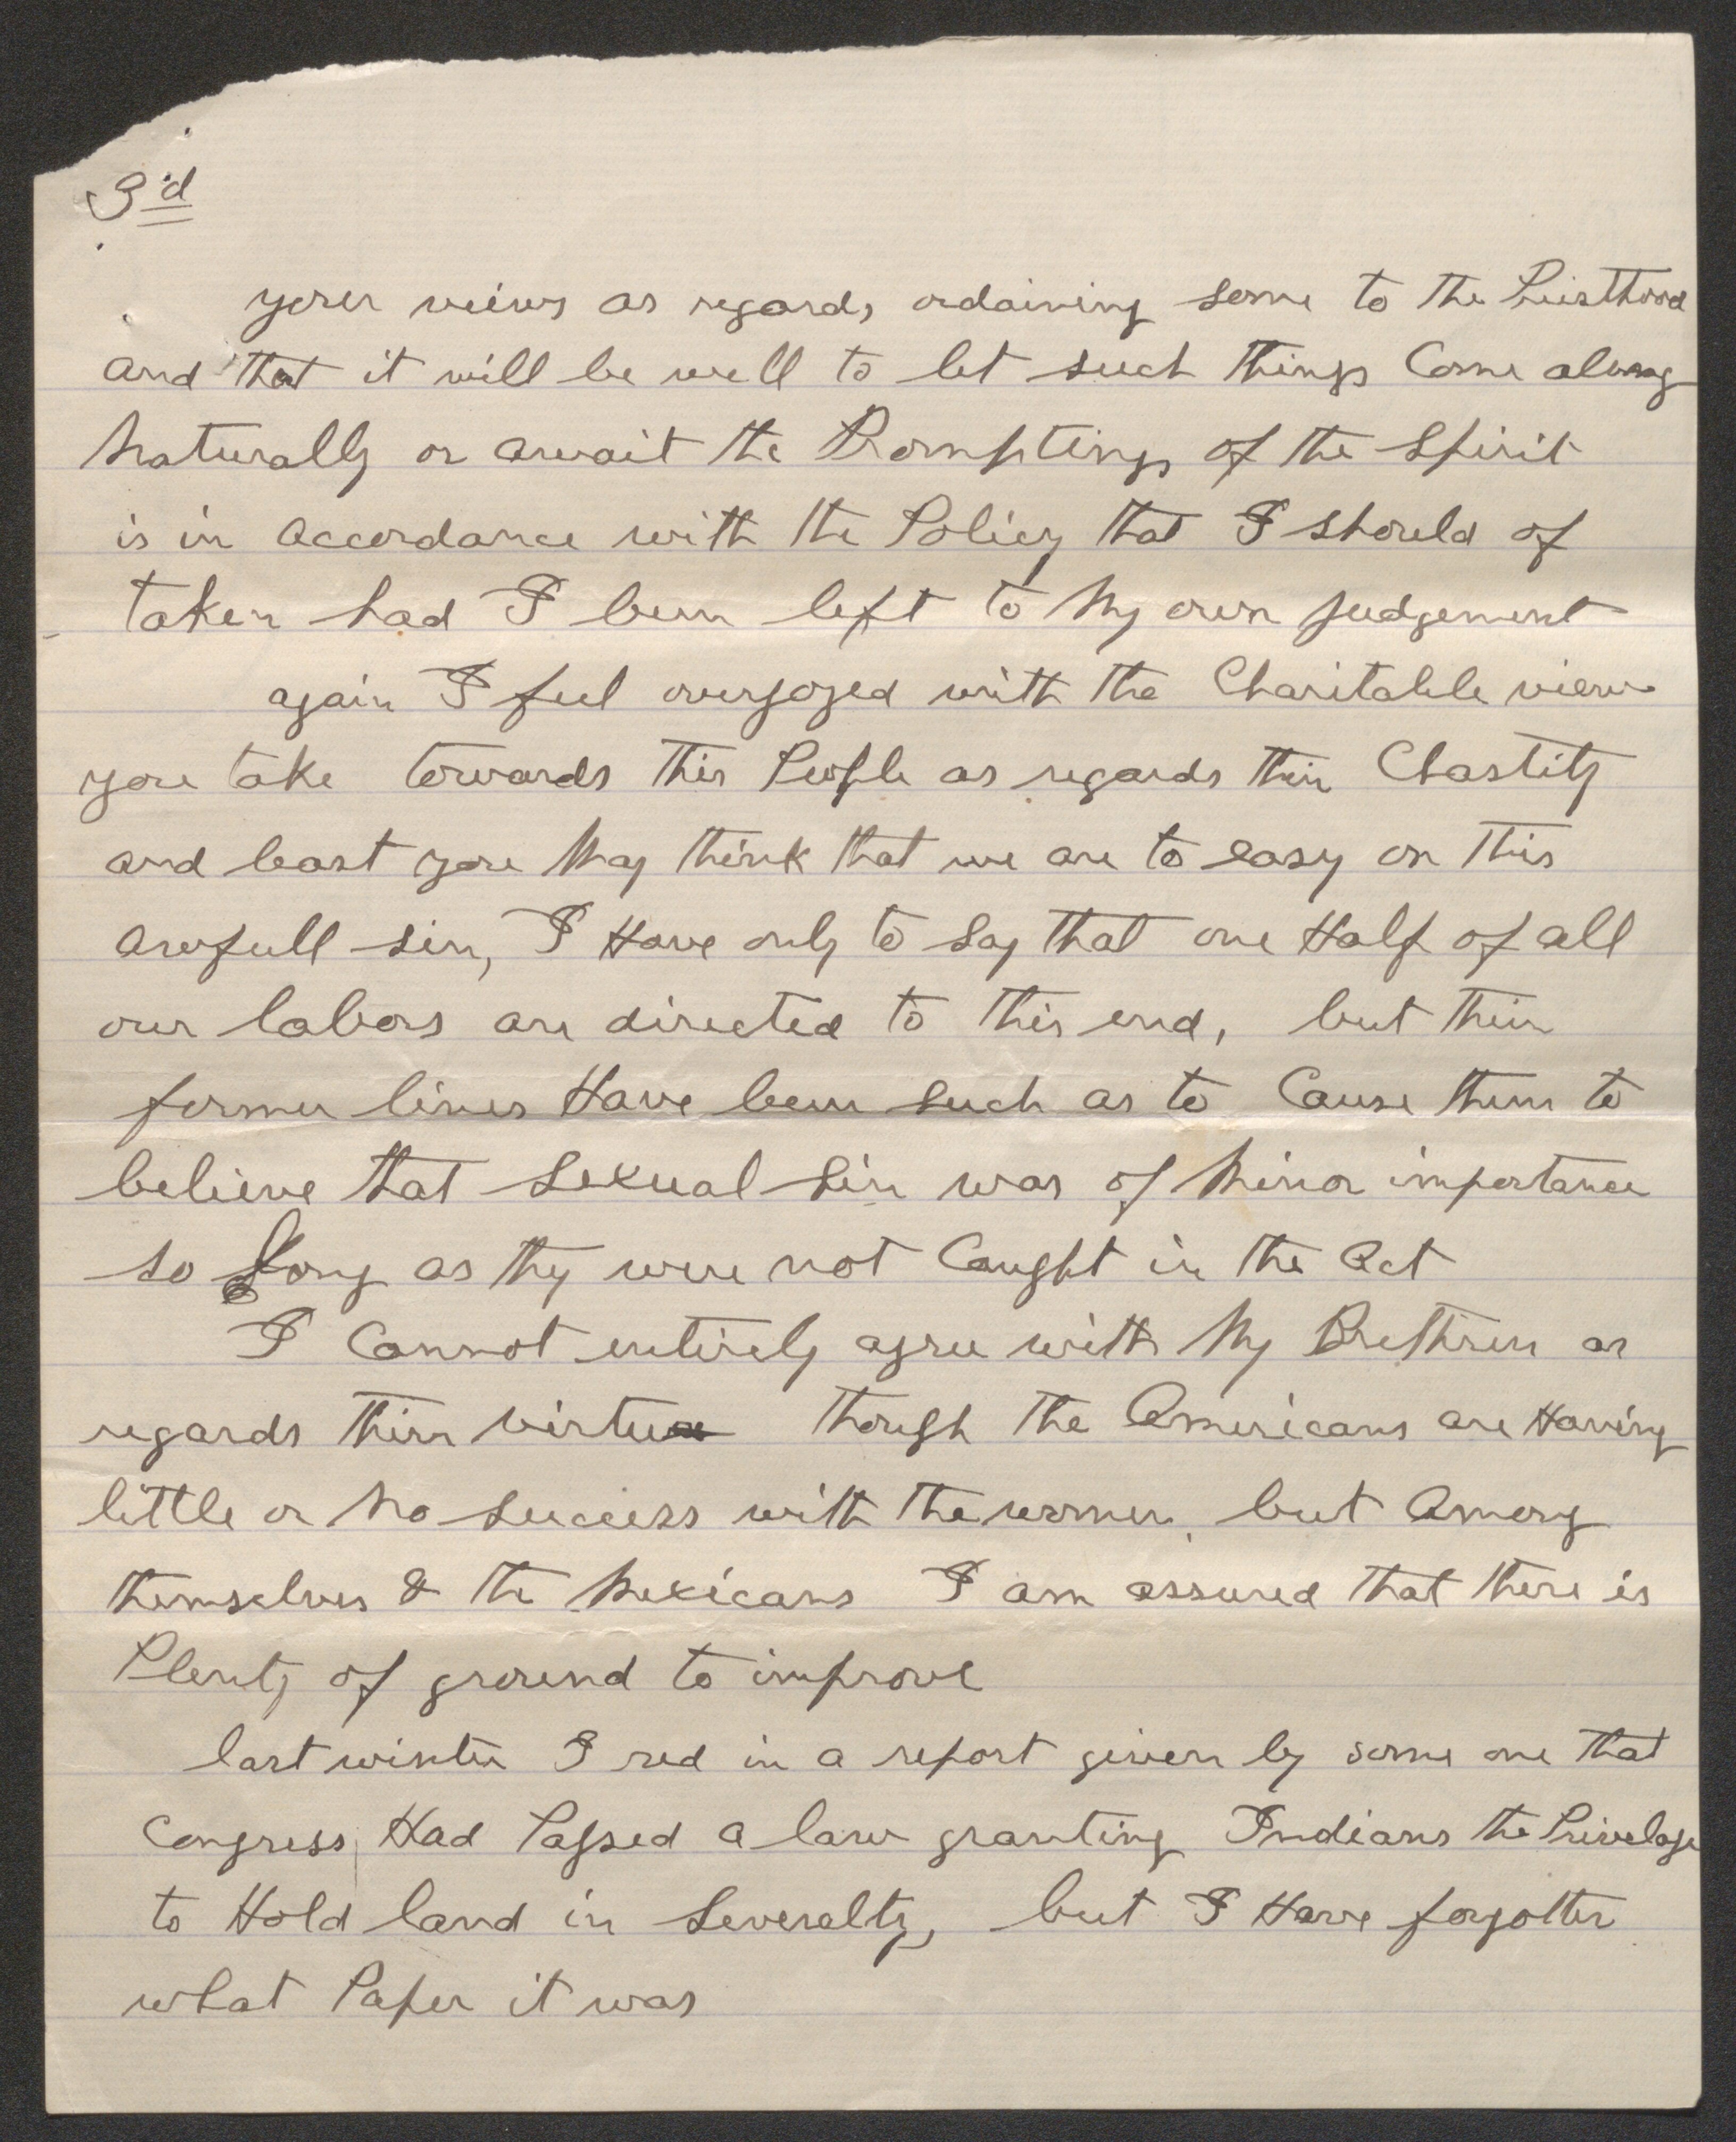 3d
your views as regards ordaining some to the Priesthood
and that it will be well to let such things Come along
Naturally or await the Promptings of the Spirit
is in accordance with the Policy that I should of
taken had I been left to My own judgement
again I feel overjoyed with the Charitable view
you take towards this People as regards thin Chastity
and least you May think that we are to easy on this
awfull sin, I Have only to say that one Half of all
our labors are directed to this end, but thier
former lives Have been such as to Cause them to
believe that sexual sin was of Minor importance
so long as they were not Caught in the act
I Cannot entirely agree with My Brethren as
regards thier virtue though the Americans are Having
little or No success with the women, but Among
themselves & the Mexicans I am assured that there is
Plenty of ground to improve
last winter I red in a report given by some one that
Congress Had Passed a law granting Indians the Privelage
to Hold land in Severalty, but I Have forgotten
what Paper it was